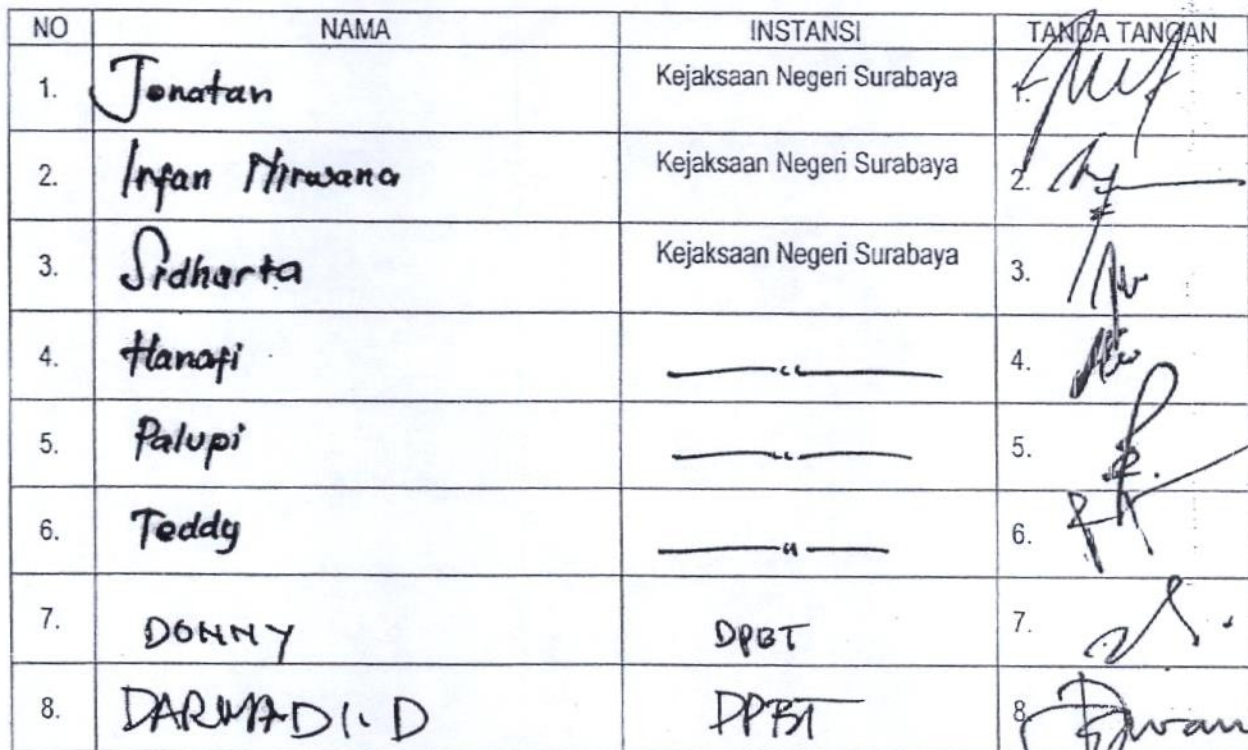 NO NAMA INSTANSI TANDA TANGAN
1. Jonatan Kejaksaan Negeri Surabaya 1.
2. Irfan Nirwana Kejaksaan Negeri Surabaya 2.
3. Sidharta Kejaksaan Negeri Surabaya 3.
4. Hanafi —〃— 4.
5. Palupi —〃— 5.
6. Teddy —〃— 6.
7. DONNY DPBT 7.
8. DARMADI. D DPBT 8.